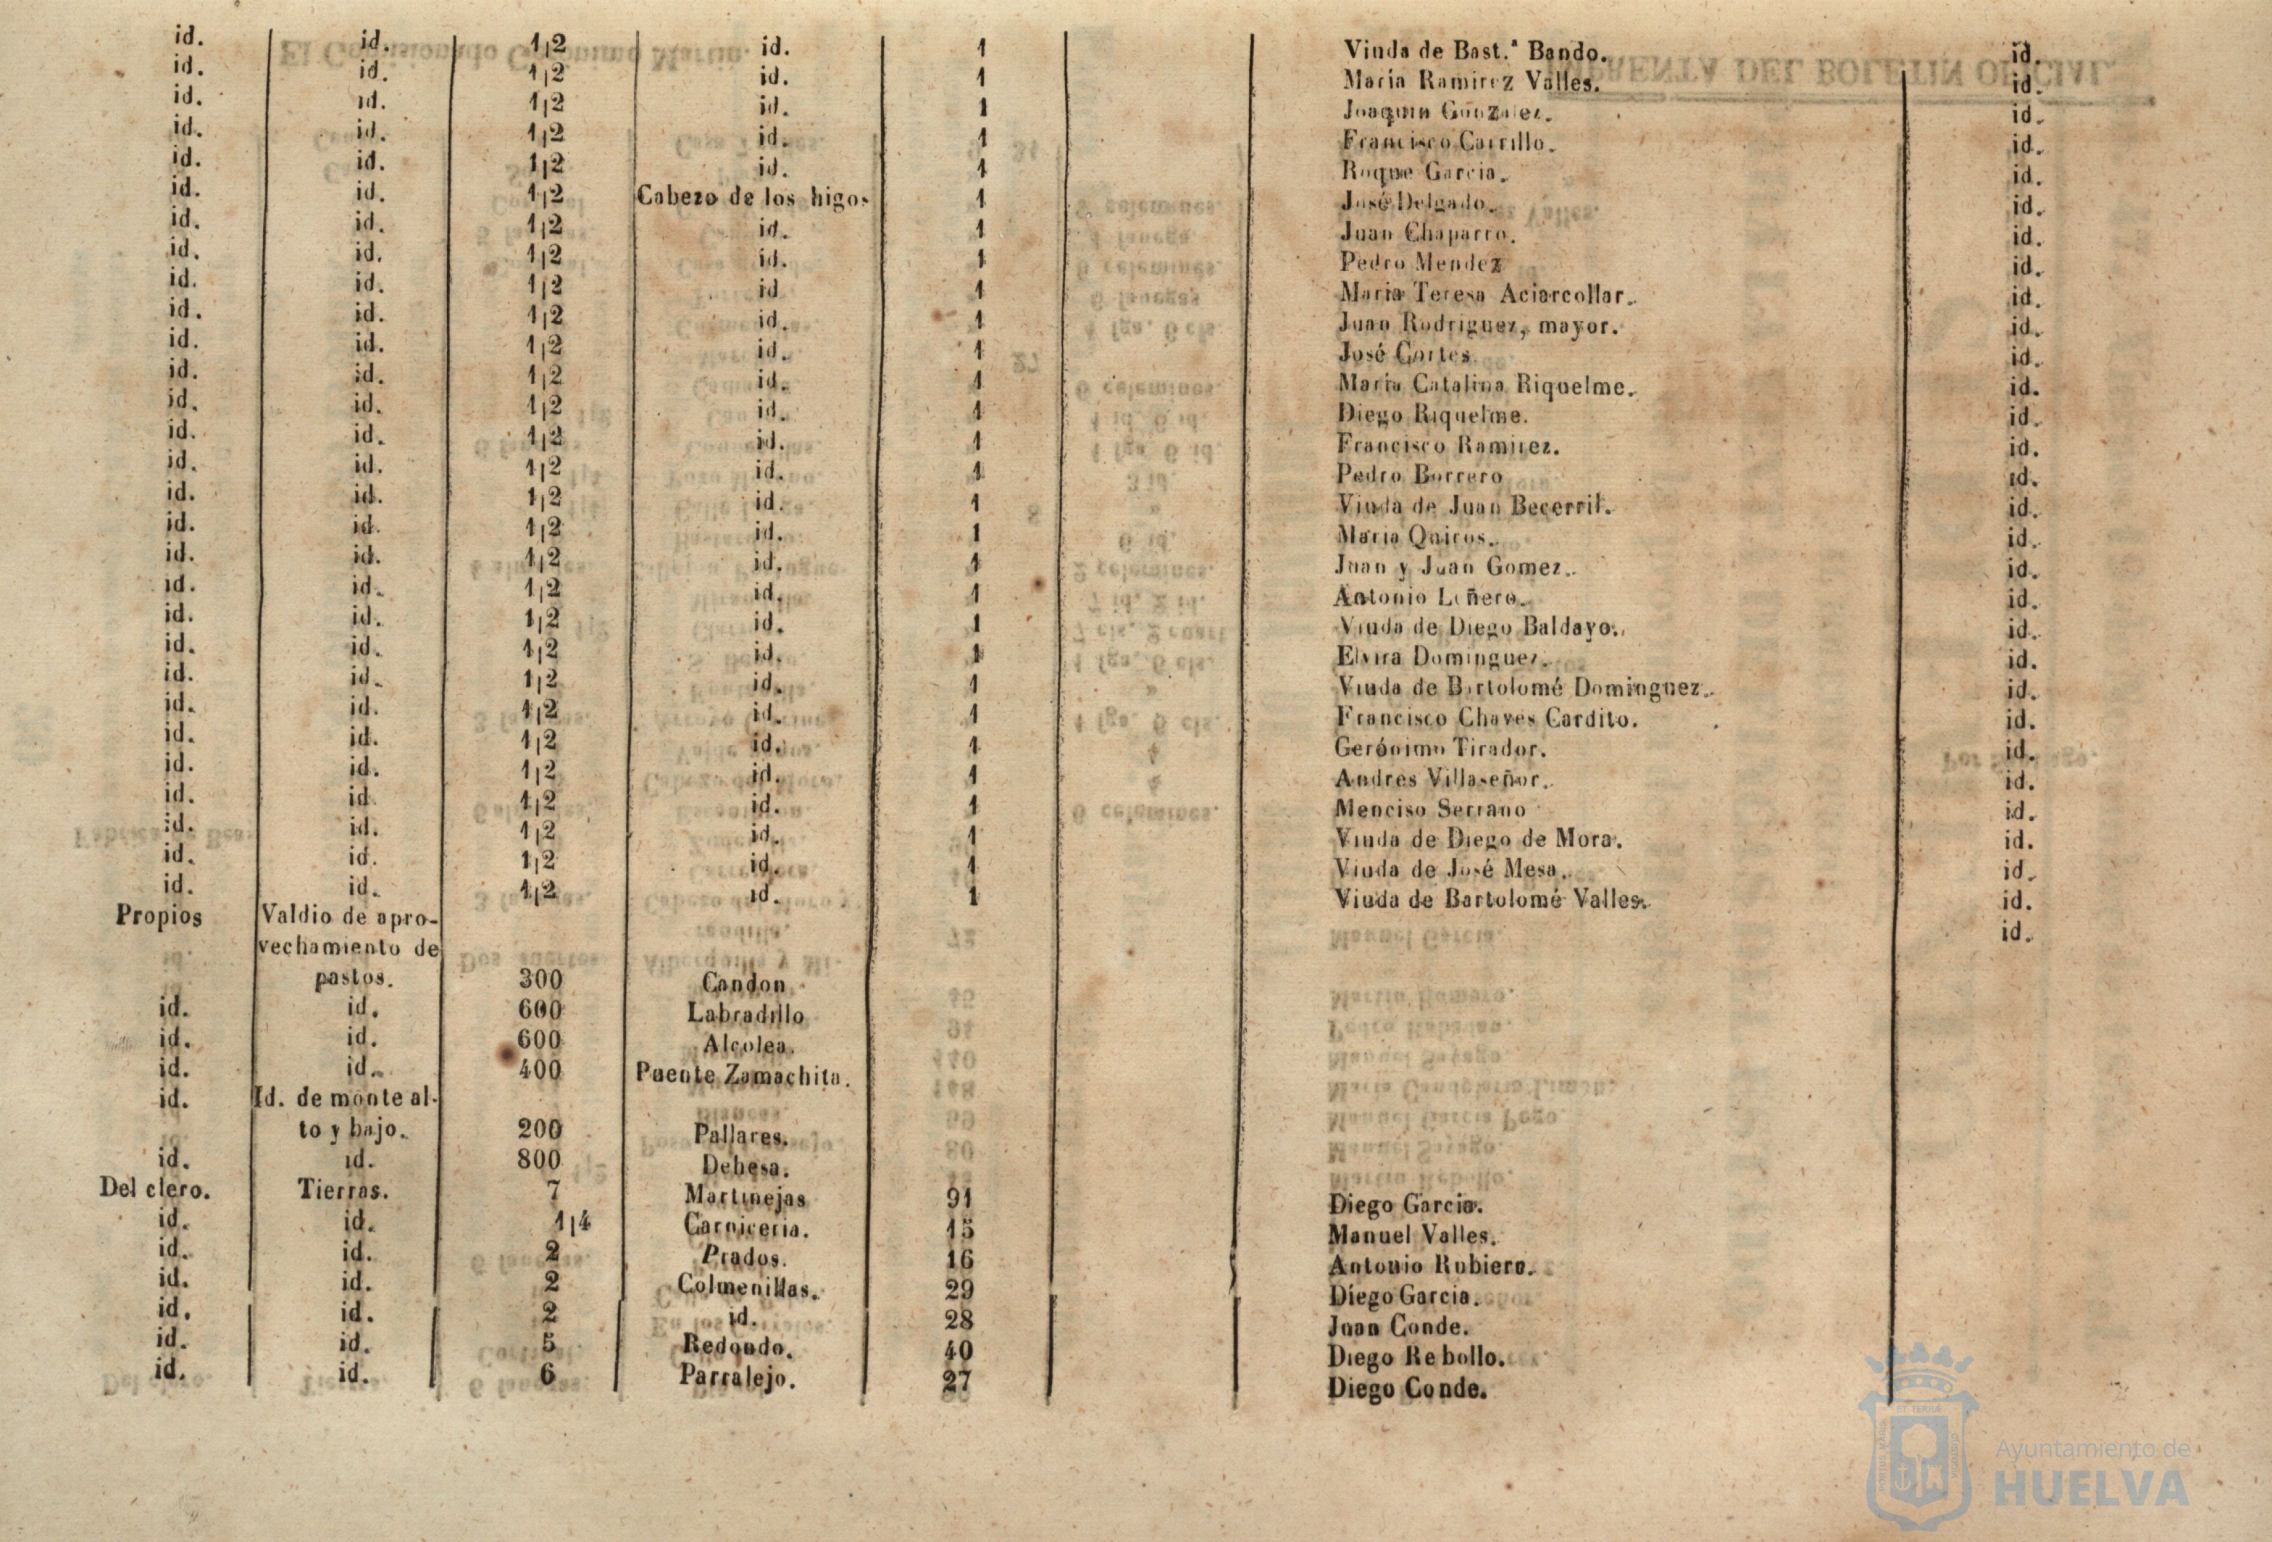 id. id. 1|2 id. 1 Viuda de Bast.ª Bando. id.
id. id. 1|2 id. 1 Maria Ramirez Valles. id.
id. id. 1|2 id. 1 Joaquin Gonzalez. id.
id. id. 1|2 id. 1 Francisco Carrillo. id.
id. id. 1|2 id. 1 Roque Garcia. id.
id. id. 1|2 Cabezo de los higos 1 José Delgado. id.
id. id. 1|2 id. 1 Juan Chaparro. id.
id. id. 1|2 id. 1 Pedro Mendez id.
id. id. 1|2 id 1 Maria Teresa Aciarcollar. id.
id. id. 1|2 id. 1 Juan Rodriguez, mayor. id.
id. id. 1|2 id. 1 José Cortes id.
id. id. 1|2 id. 1 Maria Catalina Riquelme. id.
id. id. 1|2 id. 1 Diego Riquelme. id.
id. id. 1|2 id. 1 Francisco Ramirez. id.
id. id. 1|2 id. 1 Pedro Borrero id.
id. id. 1|2 id. 1 Viuda de Juan Becerril. id.
id. id. 1|2 id. 1 Maria Quiros. id.
id. id. 1|2 id. 1 Juan y Juan Gomez. id.
id. id. 1|2 id. 1 Antonio Liñero. id.
id. id. 1|2 id. 1 Viuda de Diego Baldayo. id.
id. id. 1|2 id. 1 Elvira Dominguez. id.
id. id. 1|2 id. 1 Viuda de Bartolomé Dominguez. id.
id. id. 1|2 id. 1 Francisco Chaves Cardito. id.
id. id. 1|2 id. 1 Gerónimo Tirador. id.
id. id. 1|2 id. 1 Andres Villaseñor. id.
id. id 1|2 id. 1 Menciso Serrano id.
id. id. 1|2 id. 1 Viuda de Diego de Mora. id.
id. id. 1|2 id. 1 Viuda de José Mesa. id.
id. id. 1|2 id. 1 Viuda de Bartolomé Valles. id.
Propios Valdio de apro- id.
vechamiento de
pastos. 300 Candon
id. id. 600 Labradillo
id. id. 600 Alcolea.
id. id. 400 Puente Zamachita.
id. Id. de monte al-
to y bajo. 200 Pallares.
id. id. 800 Dehesa.
Del clero. Tierras. 7 Martinejas 91 Diego Garcia.
id. id. 1|4 Carniceria. 15 Manuel Valles.
id. id. 2 Prados. 16 Antonio Rubiero.
id. id. 2 Colmenillas. 29 Diego Garcia.
id. id. 2 id. 28 Juan Conde.
id. id. 5 Redondo. 40 Diego Rebollo.
id. id. 6 Parralejo. 27 Diego Conde.
Ayuntamiento de
HUELVA